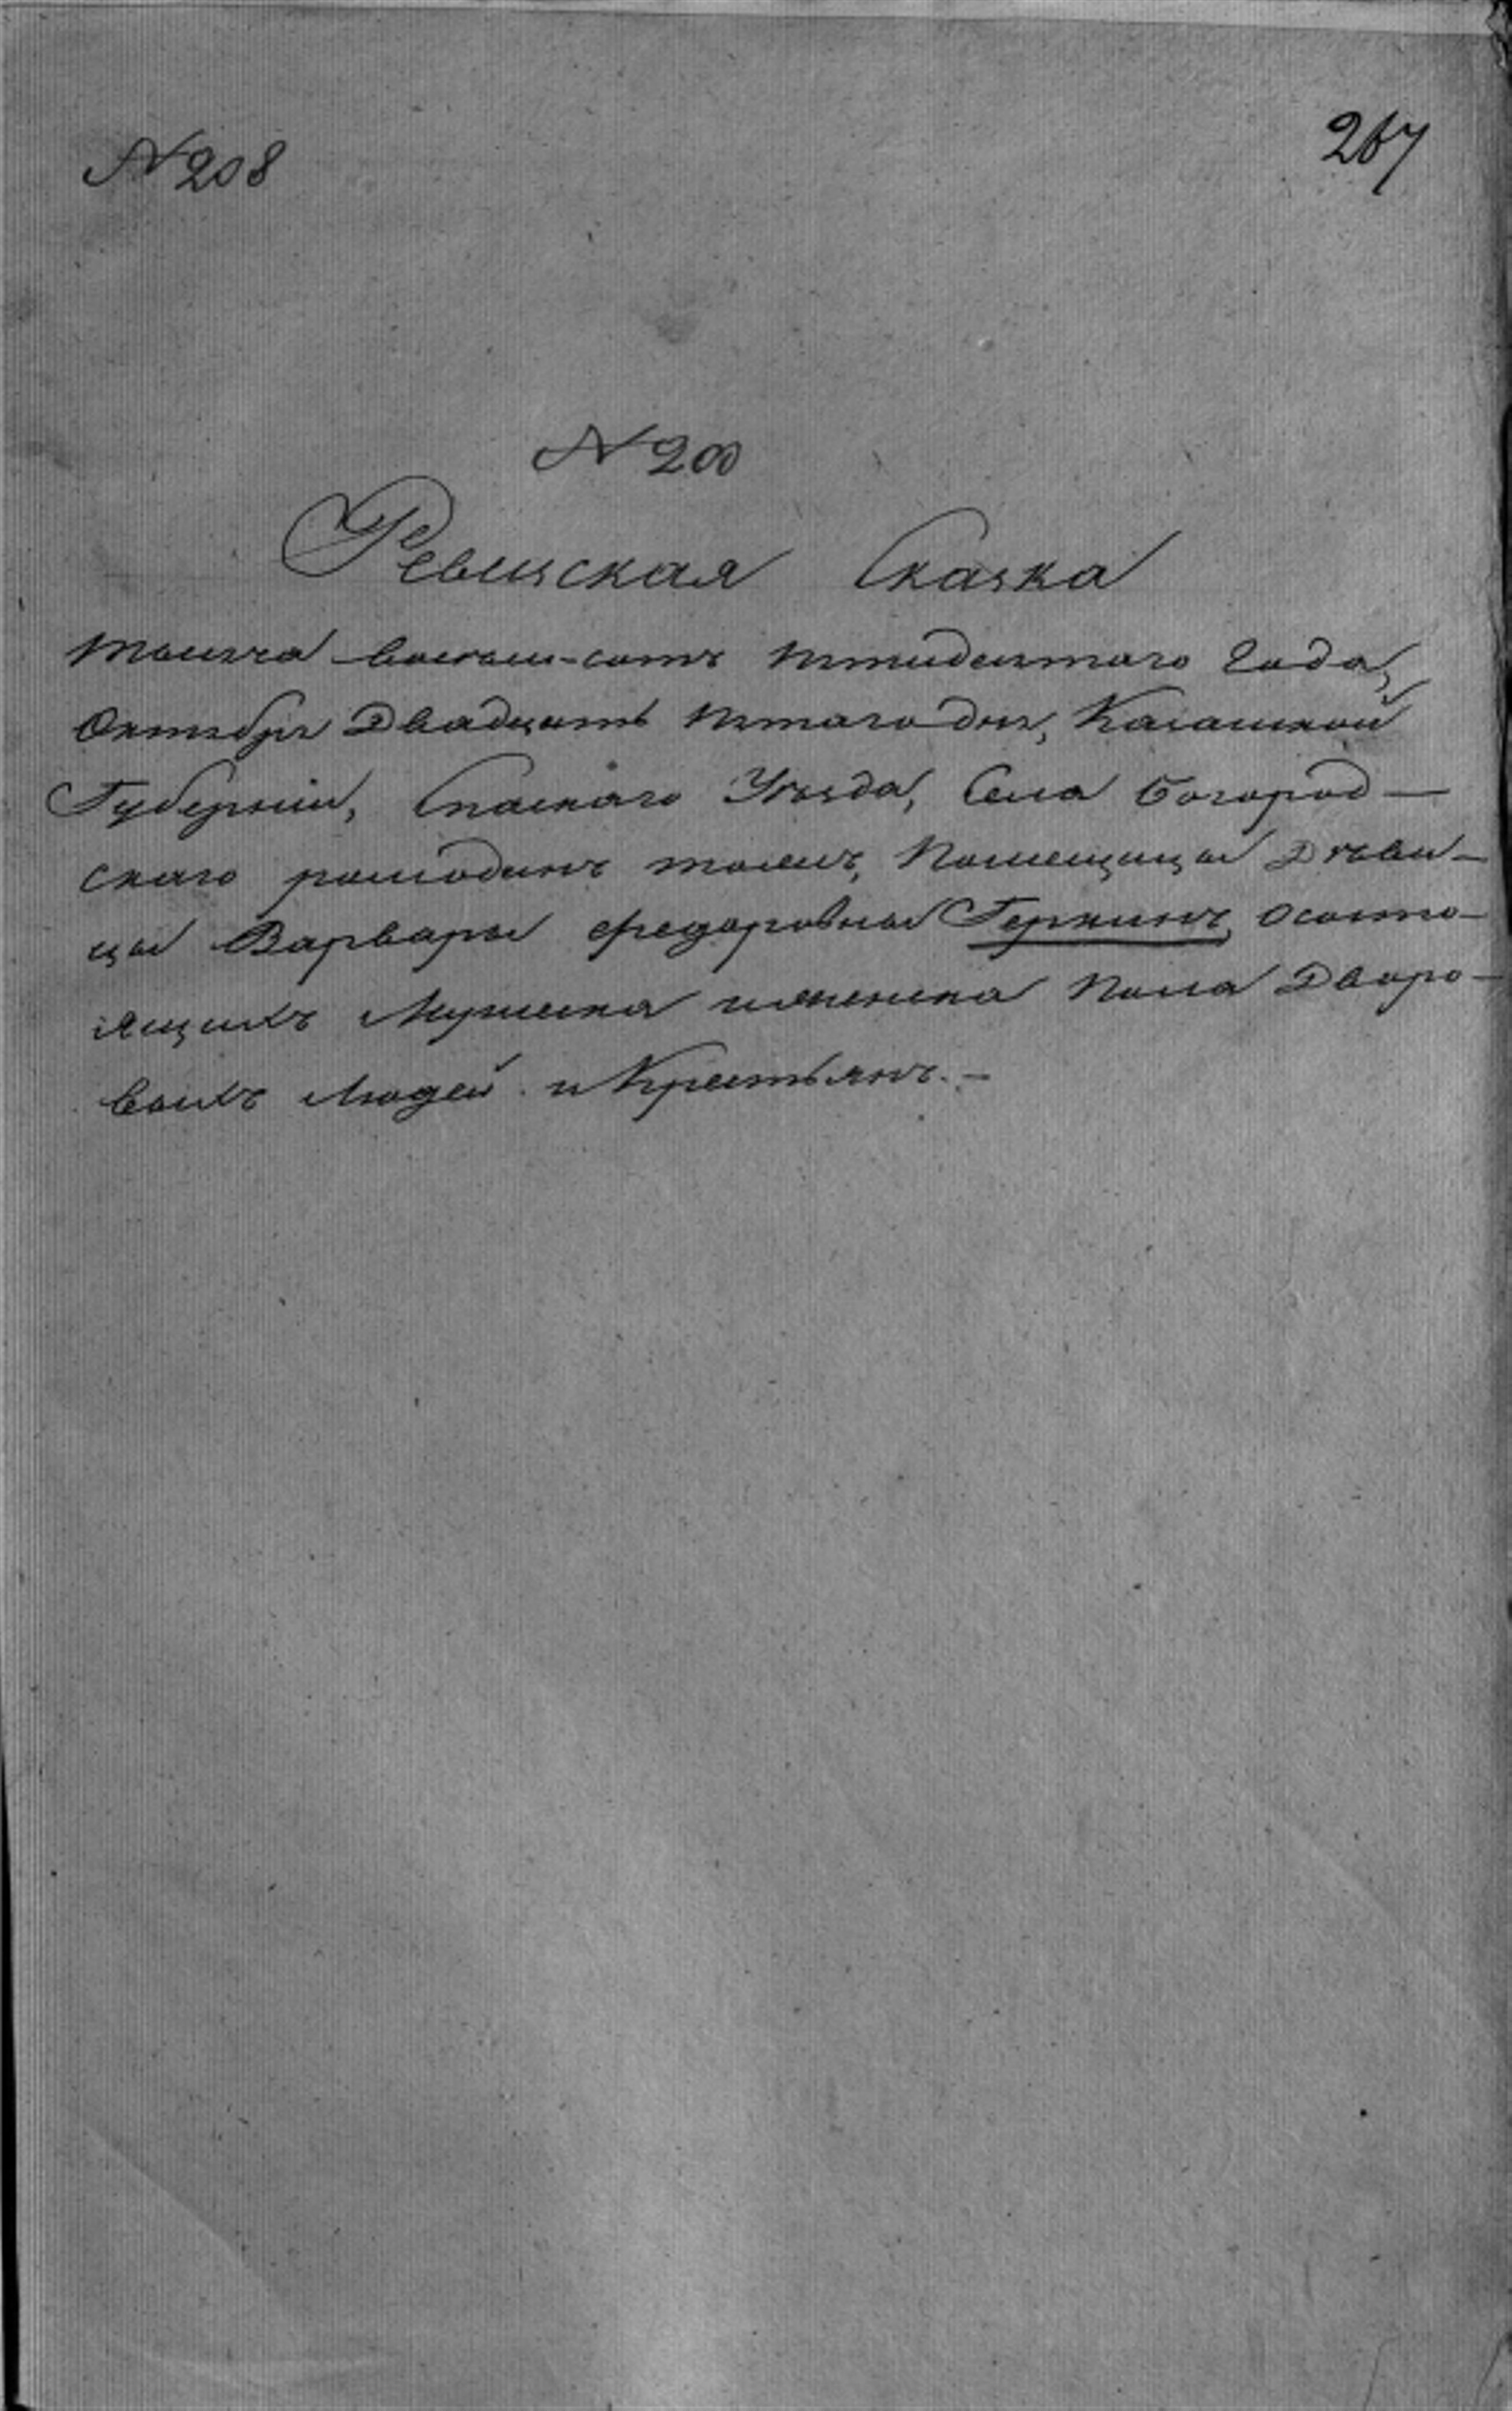 N 208
267
N 200
Ревизская Сказка
тысяча восемь-сотъ пятидесятаго Года,
Октября Двадцать пятаго дня, Казанской
Губерніи, Спаскаго Уѣзда, Села Богород-
скаго тожъ, Помещицы Дѣви-
цы Варвары Федоровны Геркинъ, Ососто-
ящихъ Мужеска и женска Пола Дворо-
выхъ Людей и Крестьянъ.-